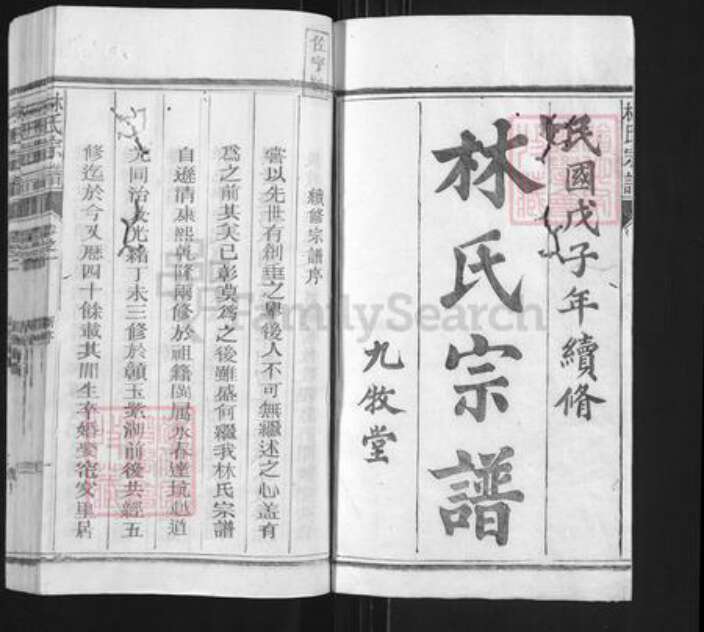 民國戊子年續脩
林氏宗譜
九牧堂
林氏宗譜
續修宗譜序
嘗以先世有創垂之舉後人不可無繼述之心盖有
為之前其美已彰莫為之後雖盛何繼我林氏宗譜
自遜清康熙乾隆兩修於祖籍閩属永春達坑越道
光同治及光緒丁未三修於贛玉紫湖前後共經五
修迄於今又歷四十餘載其間生卒婚娶窀穸里居
林氏宗譜
FamilySearch